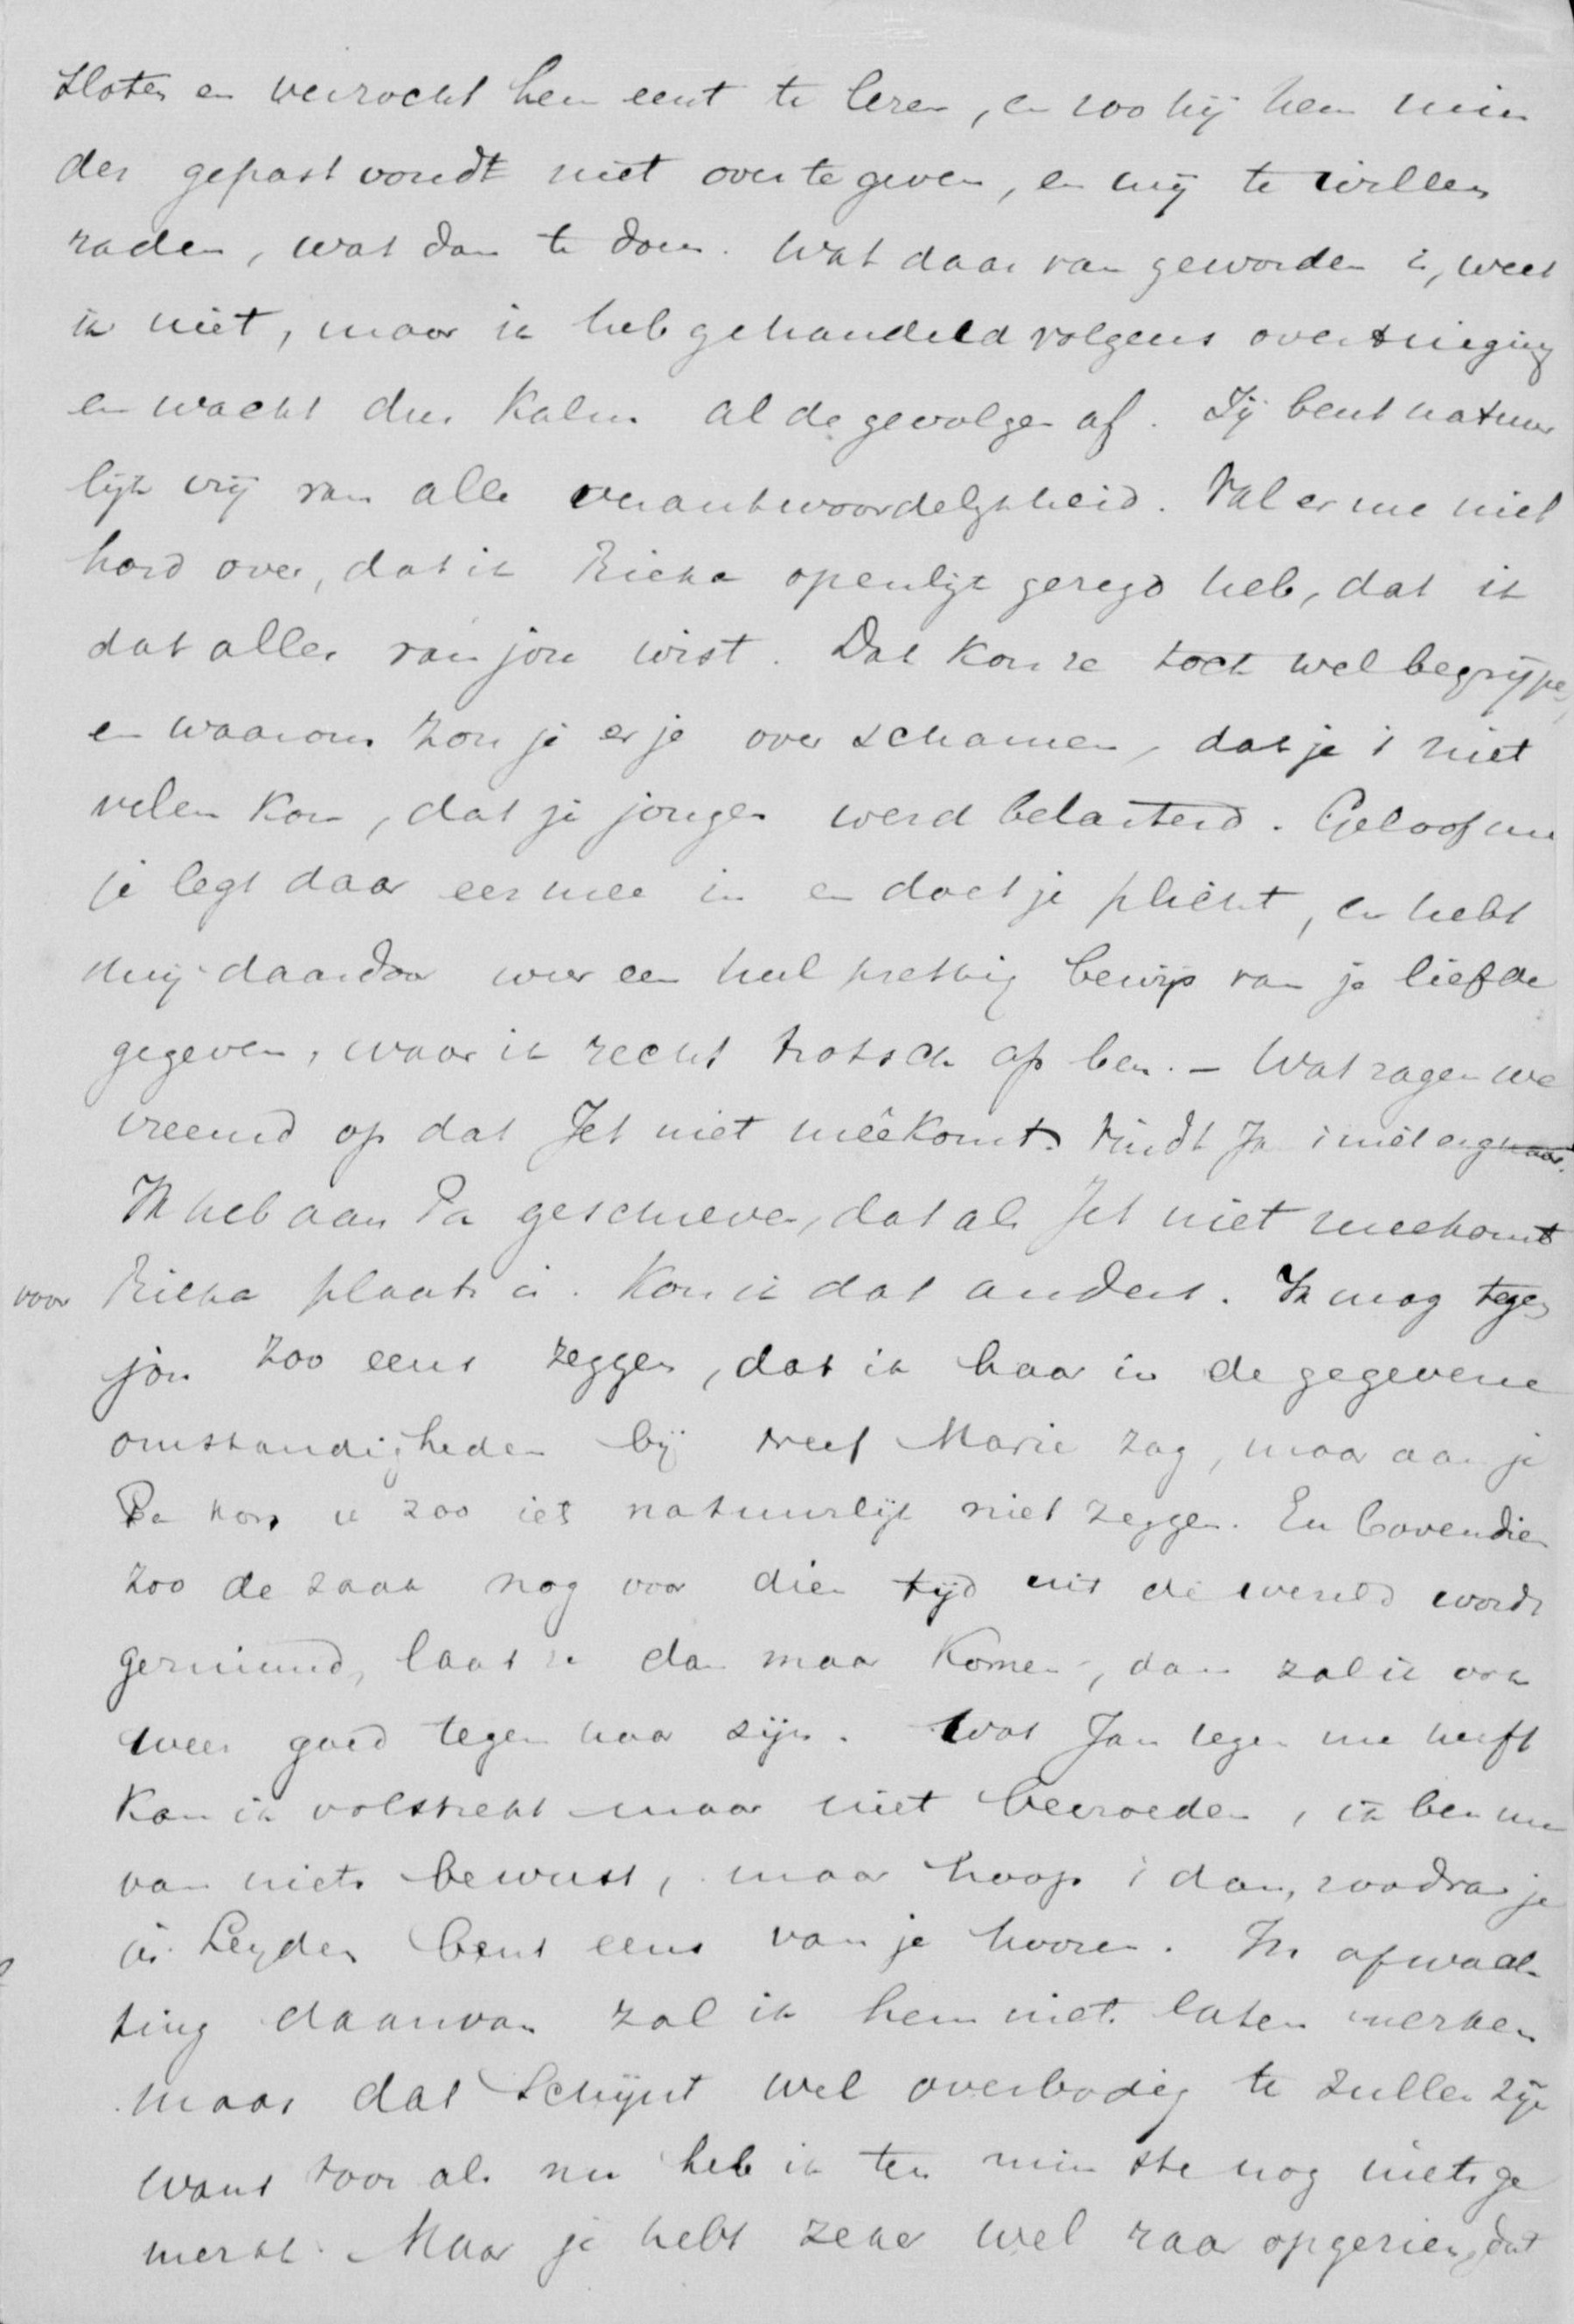 sloten en verzocht hem eerst te lezen, en zoo hij hem min
der gepast vondt niet over te geven, en mij te willen
raden, wat dan te doen. Wat daar van geworden is, weet
ik niet, maar ik heb gehandeld volgens overtuiging
en wacht dus kalm al de gevolgen af. Jij bent natuur
lijk vrij van alle verantwoordelijkheid. Val er me niet
hard over, dat ik Rieka openlijk gezegd heb, dat ik
dat alles van jou wist. Dat kon ze toch wel begrijpen,
en waarom zou je er je over schamen, dat je 't niet
velen kon, dat je jongen werd belasterd. Geloof me
je legt daar eer mee in en doet je plicht, en hebt
mij daardoor weer een heel prettig bewijs van je liefde
gegeven, waar ik recht trotsch op ben. – Wat zagen we
vreemd op dat Jet niet meêkomt. Vindt Ja 't niet erg naar.
Ik heb aan Pa geschreven, dat als Jet niet meekomt
voor Rieka plaats is. Kon ik dat anders. Ik mag tegen
jou zoo eens zeggen, dat ik haar in de gegevene
omstandigheden bij Marie zag, maar aan je
Pa kon ik zoo iets natuurlijk niet zeggen. En bovendien
zoo de zaak nog voor dien tijd uit de wereld wordt
geruimd, laat ze dan maar komen, dan zal ik ook
weer goed tegen haar zijn. Wat Jan tegen me heeft
kan ik volstrekt maar niet bevroeden, ik ben me
van niets bewust, maar hoop 't dan, zoodra je
in Leyden bent eens van je hooren. In afwach-
ting daarvan zal ik hem niets laten merken
maar dat schijnt wel overbodig te zullen zijn
want voor als nu heb ik ten minste nog niets ge
merkt. Maar je hebt zeker wel raar opgezien, dat